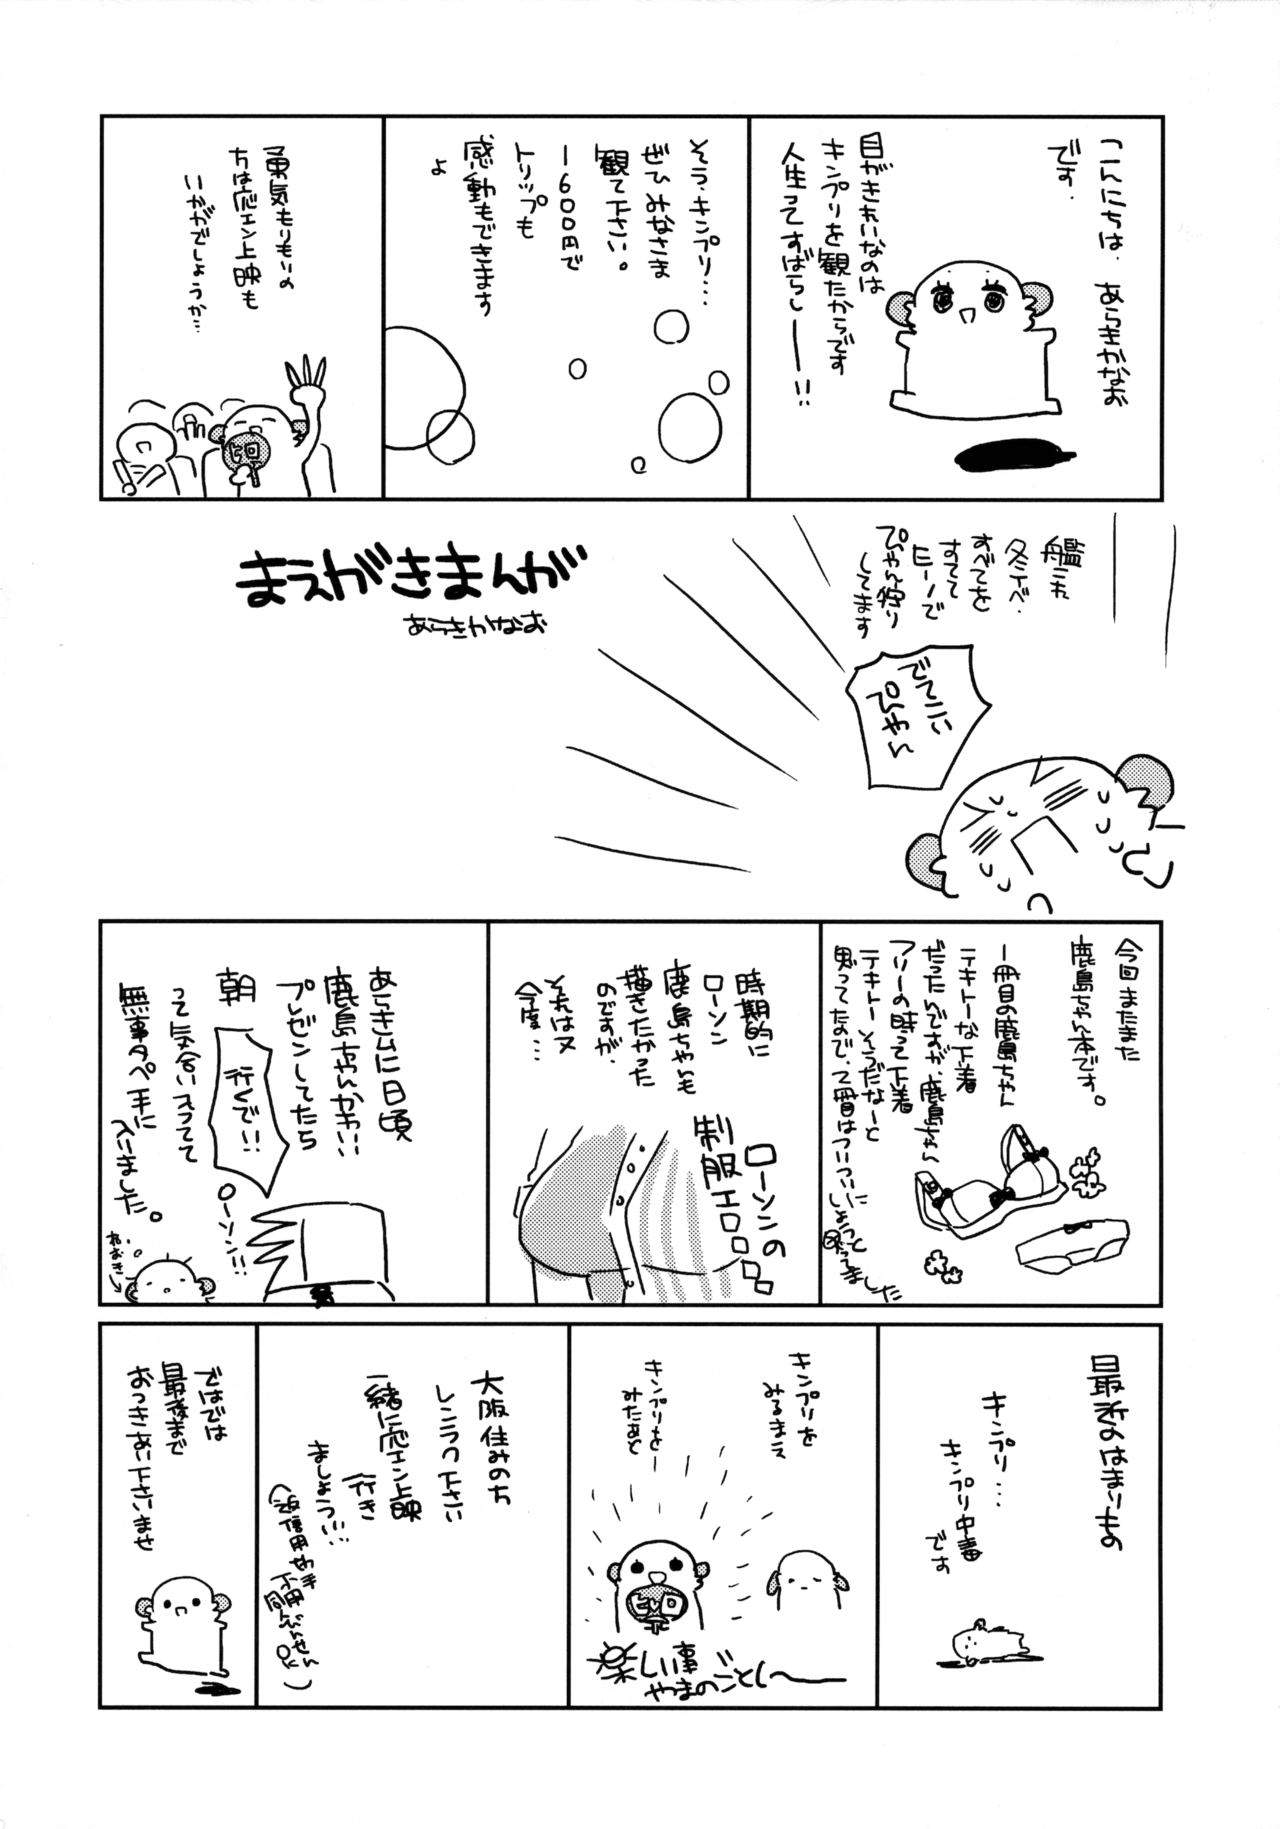 こんにちは、あらきかなお
です、
目がきれいなのは
キンプリを観たからです
人生ってすばらしーー!!
そう、キンプリ…
ぜひみなさま
観て下さい。
1600円で
トリップも
感動もできます
よ
勇気もりもりの
方は応エン上映も
いかがでしょうか…
ヒロ
まえがきまんが
あらきかなお
艦これ
冬イベ、
すべてを
すてて
ヒーノで
ぴゃん狩り
してます
でてこい
ぴゃん
今回またまた
鹿島ちゃん本です。
一冊目の鹿島ちゃん
テキトーな下着
だったんですが、鹿島ちゃん
フリーの時って下着
テキトーそうだなーと
思ってたので、2冊目はついついに
しょっと
ってました
時期的に
ローソン
鹿島ちゃんも
描きたかった
のですが、
それは又
今度…
ローソンの
制服エロロロロ
あらきムに日頃
鹿島ちゃんかわいい
プレゼンしてたら
朝
行くで!!
ローソン!!
って気合い入ってて
無事タペ手に
入りました。
ねおき
最近のはまりもの
キンプリ…
キンプリ中毒
です
キンプリを
みるまえ
キンプリをー
みたあと
ヒロ
楽しい事
やまのごとし〜
大阪住みの方
レンラク下さい
一緒に応エン上映
行き
ましょう!!…
(返信用切手
不用
OK)
ではでは
最後まで
おつきあい下さいませ